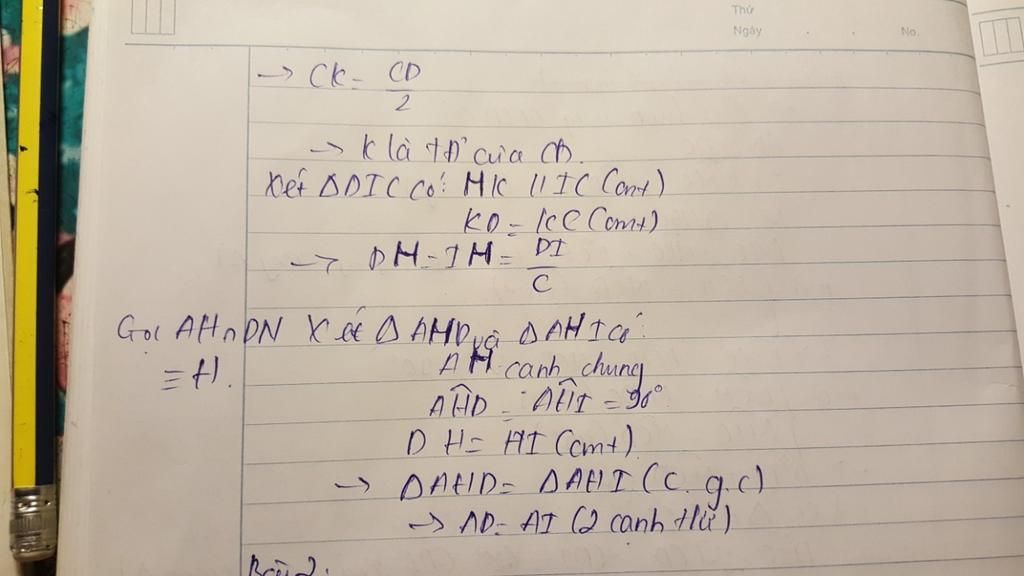 Thứ
Ngày . . No.
→ CK = CD/2
→ K là tđ của CD.
Xét ΔDIC có: HK // IC (cmt)
KD = KC (cmt)
→ DH = IH = DI/C
Gọi AH ∩ DN Xét ΔAHD và ΔAHI có:
≡ H. AH cạnh chung
AĤD = AĤI = 90°
DH = HI (cmt)
→ ΔAHD = ΔAHI (c.g.c)
→ AD = AI (2 cạnh t/ứ)
Bài 2: